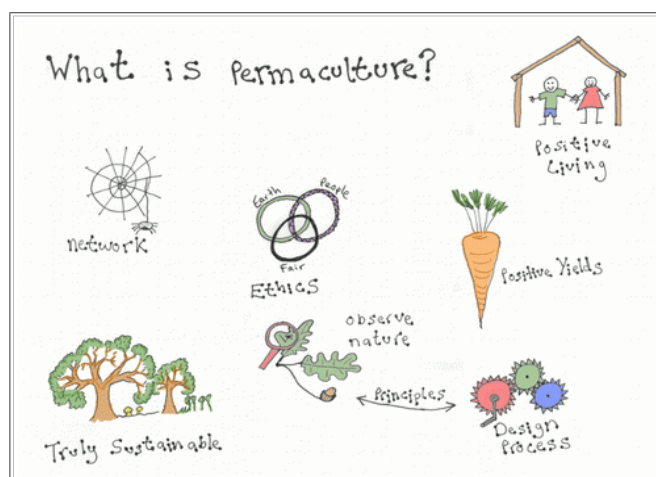 What is Permaculture?
Positive
Living
Network
Earth
People
Fair
Ethics
Positive Yields
observe
nature
Principles
Truly Sustainable
Design
Process